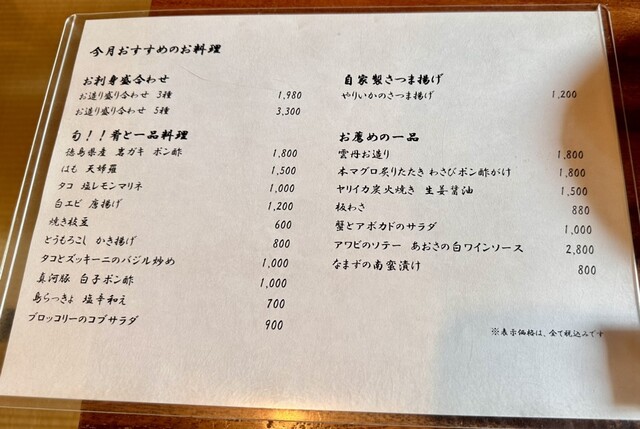 今月おすすめのお料理
お刺身盛合わせ
お造り盛り合わせ 3種 1,980
お造り盛り合わせ 5種 3,300
旬！！肴と一品料理
徳島県産 岩ガキ ポン酢 1,800
はも 天婦羅 1,500
タコ 塩レモンマリネ 1,000
白エビ 唐揚げ 1,200
焼き枝豆 600
とうもろこし かき揚げ 800
タコとズッキーニのバジル炒め 1,000
真河豚 白子ポン酢 1,000
島らっきょ 塩辛和え 700
ブロッコリーのコブサラダ 900
自家製さつま揚げ
やりいかのさつま揚げ 1,200
お薦めの一品
雲丹お造り 1,800
本マグロ炙りたたき わさびポン酢がけ 1,800
ヤリイカ炭火焼き 生姜醤油 1,500
板わさ 880
蟹とアボカドのサラダ 1,000
アワビのソテー あおさの白ワインソース 2,800
なまずの南蛮漬け 800
※表示価格は、全て税込みです